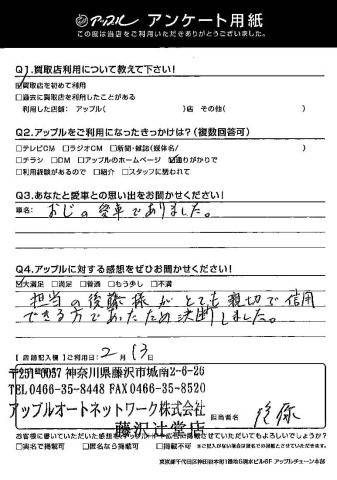 アップル アンケート用紙
この度は当店をご利用いただきありがとうございました。
Q1.買取店利用について教えて下さい!
☑買取店を初めて利用
□過去に買取店を利用したことがある
利用した店舗：アップル( )店 その他( )
Q2.アップルをご利用になったきっかけは?(複数回答可)
□テレビCM □ラジオCM □新聞・雑誌(媒体名/ )
□チラシ □DM □アップルのホームページ ☑通りがかりで
□利用経験があるので □紹介 □スタッフに誘われて
Q3.あなたと愛車との思い出をお聞かせください!
車名: おじの愛車でありました。
Q4.アップルに対する感想をぜひお聞かせください!
☑大満足 □満足 □普通 □もう少し □不満
担当の後藤様がとても親切で信用
できる方であったため決断しました。
【店舗記入欄】ご利用日: 2月13日
〒251-0057 神奈川県藤沢市城南2-6-26
TEL0466-35-8448 FAX0466-35-8520
アップルオートネットワーク株式会社
藤沢辻堂店
担当者名
お客様に書いていただいた感想をアップルホームページ・広告などに掲載させていただいてもよろしいでしょうか?
□実名で掲載可 □匿名なら掲載可 □掲載不可
東京都千代田区神田佐久間町1番地6 アップルチェーン本部